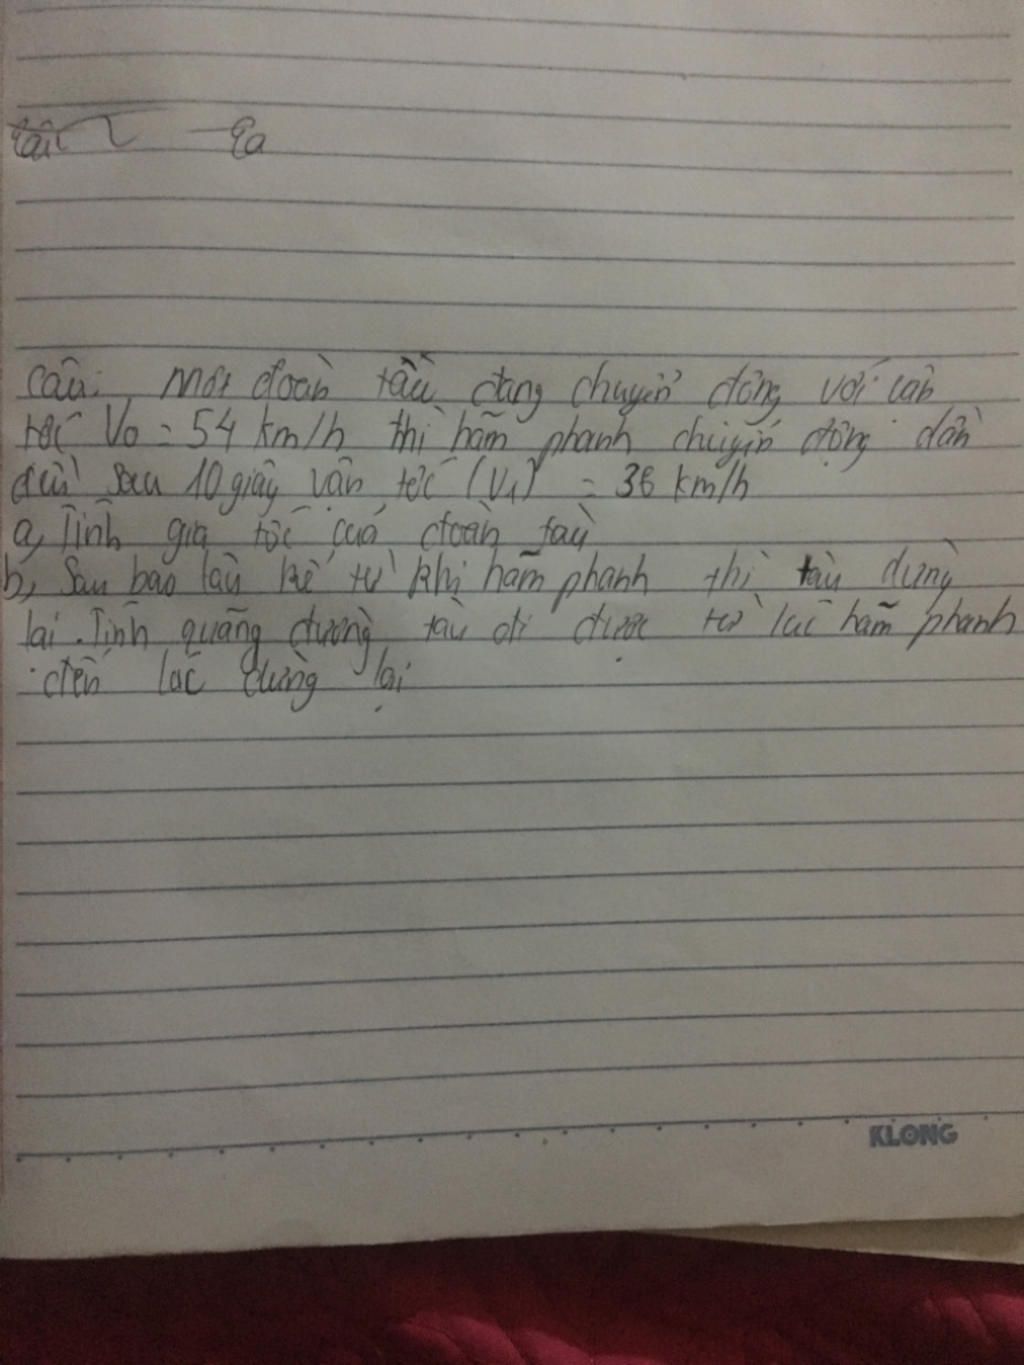 Câu: Một đoàn tàu đang chuyển động với vận
tốc V₀ = 54 km/h thì hãm phanh chuyển động dần
đều sau 10 giây vận tốc (V₁) = 36 km/h
a, Tính gia tốc của đoàn tàu
b, Sau bao lâu kể từ khi hãm phanh thì tàu dừng
lại. Tính quãng đường tàu đi được từ lúc hãm phanh
đến lúc dừng lại
KLONG